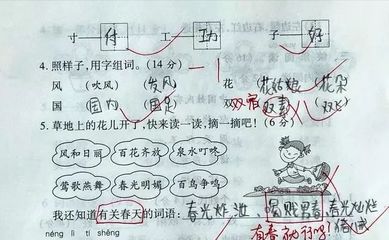 寸 付 工 功 子 好
4. 照样子，用字组词。(14 分) -1
风 (吹风) (发风) 花 (花姑娘) (花朵)
国 (国内) (国足) 双 (双宿双
5. 草地上的花儿开了，快来读一读，摘一摘吧！(6 分)
风和日丽 百花齐放 泉水叮咚
莺歌燕舞 春光明媚 百鸟争鸣
我还知道有关春天的词语：春光灿 春光灿
有春就行吗？
néng lì tí shēng